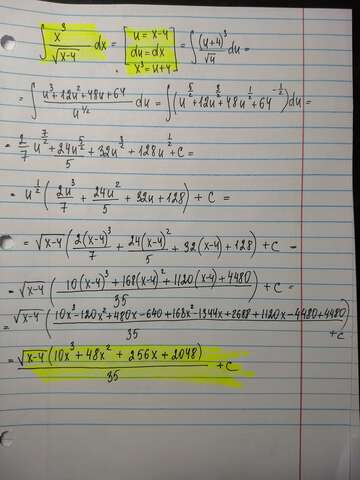 ∫ x³/√(x-4) dx = [u = x-4
du = dx
x³ = u+4] = ∫ (u+4)³/√u du =
= ∫ (u³+12u²+48u+64)/u^(1/2) du = ∫ (u^(5/2) + 12u^(3/2) + 48u^(1/2) + 64^(-1/2)) du =
= 2/7 u^(7/2) + 24u^(5/2)/5 + 32u^(3/2) + 128u^(1/2) + C =
= u^(1/2) (2u³/7 + 24u²/5 + 32u + 128) + C =
= √(x-4) (2(x-4)³/7 + 24(x-4)²/5 + 32(x-4) + 128) + C =
= √(x-4) ((10(x-4)³ + 168(x-4)² + 1120(x-4) + 4480)/35) + C =
= √(x-4) ((10x³-120x²+480x-640+168x²-1344x+2688+1120x-4480+4480)/35) + C
= √(x-4) (10x³+48x²+256x+2048)/35 + C